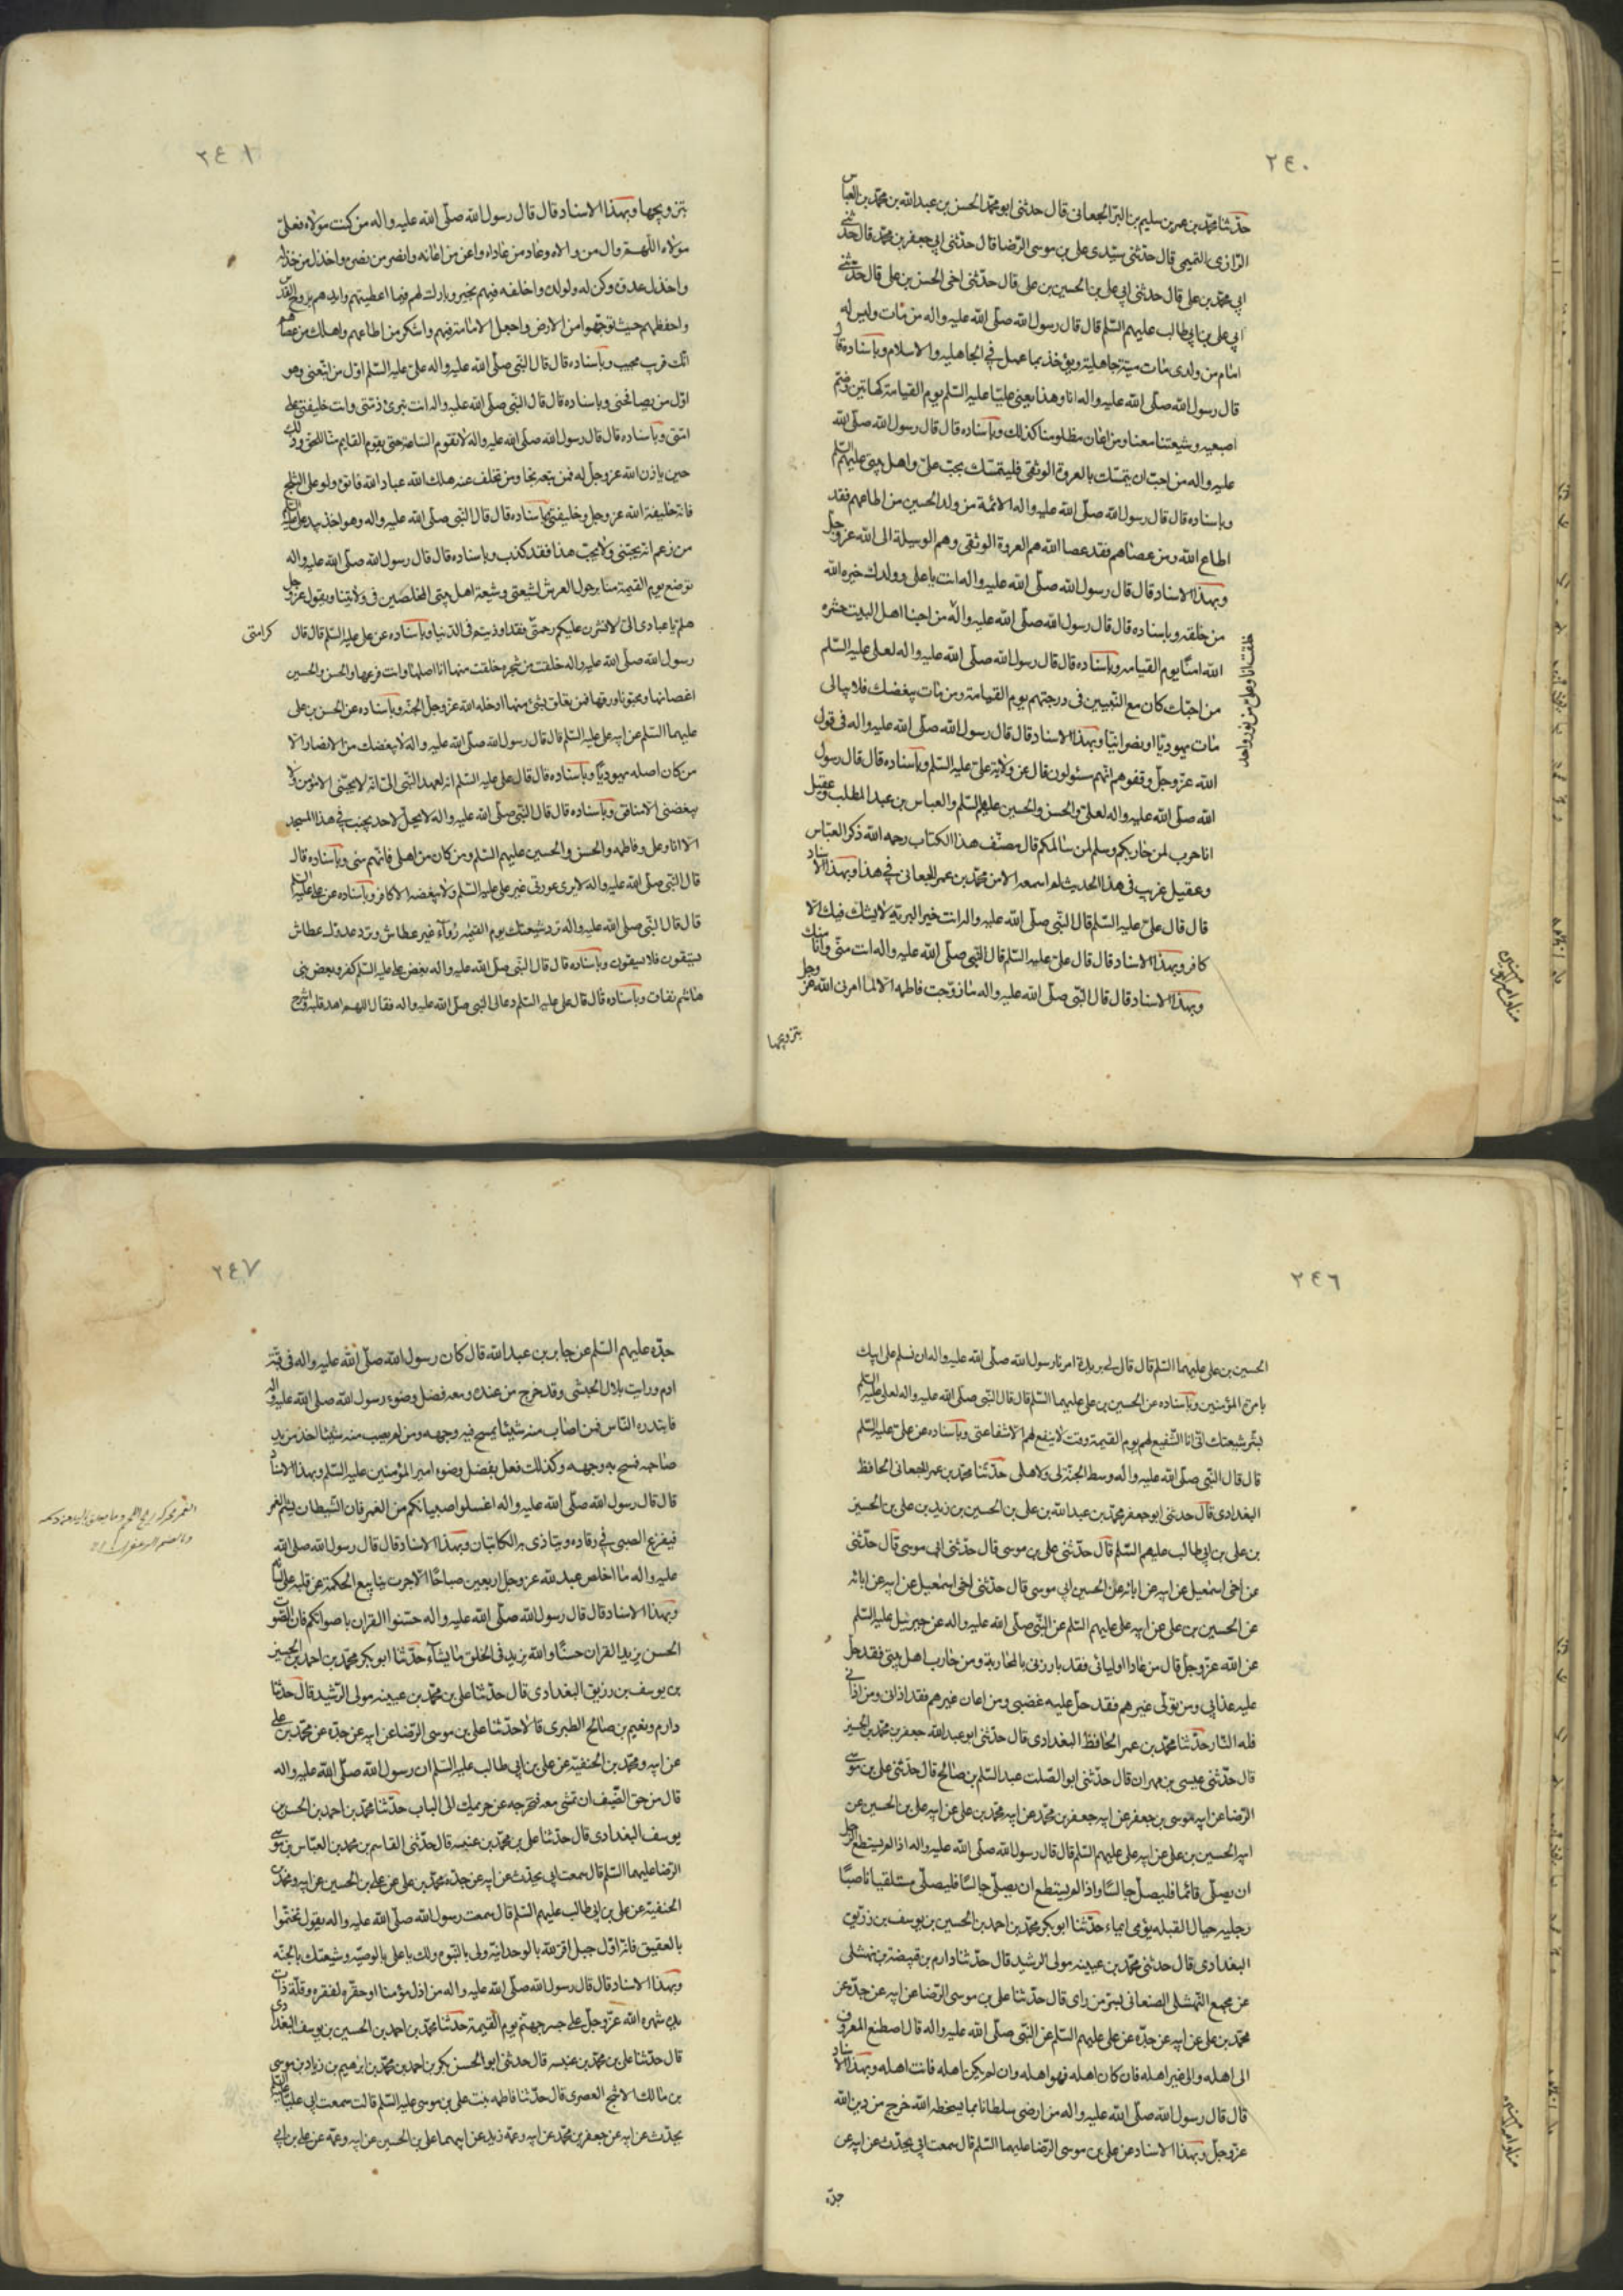 ٢٤٠
حدّثنا محمّد بن عمر بن سليم بن البرّ الجعابى قال حدثنى ابو محمّد الحسن بن عبد الله بن محمّد بن العباس
الرّازى التميمى قال حدثنى سيّدى على بن موسى الرّضا قال حدّثنى ابى جعفر بن محمّد قال حدّثنى
ابى محمّد بن على قال حدثنى ابى على بن الحسين بن على قال حدّثنى اخى الحسن بن على قال حدّثنى
ابى على بن ابى طالب عليهم السّلم قال قال رسول الله صلّى الله عليه واله من مات وليس له
امام من ولدى مات ميتة جاهلية ويؤخذ بما عمل فى الجاهليه والاسلام وباسناده قال
قال رسول الله صلّى الله عليه واله انا وهذا يعنى عليّا عليه السّلم يوم القيامة كهاتين وضمّ
اصبعيه وشيعتنا معنا ومن اعان مظلومنا كذلك وباسناده قال قال رسول الله صلّى الله
عليه واله من احبّ ان يتمسّك بالعروة الوثقى فليتمسّك بحبّ علىّ واهل بيتى عليهم السّلم
وباسناده قال قال رسول الله صلّى الله عليه واله الائمّة من ولد الحسين من اطاعهم فقد
اطاع الله ومن عصاهم فقد عصا الله هم العروة الوثقى وهم الوسيلة الى الله عزّ وجلّ
وبهذا الاسناد قال قال رسول الله صلّى الله عليه واله انت يا على وولدك خيره الله
من خلقه وباسناده قال قال رسول الله صلّى الله عليه واله من احبنا اهل البيت حشره
الله امنًا يوم القيامه وباسناده قال قال رسول الله صلّى الله عليه واله لعلى عليه السّلم
من احبّك كان مع النّبيين فى درجتهم يوم القيامة ومن مات يبغضك فلا يبالى
مات يهوديّا او نصرانيّا وبهذا الاسناد قال قال رسول الله صلّى الله عليه واله فى قول
الله عزّ وجلّ وقفوهم انّهم مسئولون قال عن ولاية علىّ عليه السّلم وباسناده قال قال رسول
الله صلّى الله عليه واله لعلىّ والحسن والحسين عليهم السّلم والعباس بن عبد المطلب وعقيل
انا حرب لمن حاربكم وسلم لمن سالمكم قال مصنّف هذا الكتاب رحمه الله ذكر العبّاس
وعقيل غريب فى هذا الحديث لم اسمعه الا من محمّد بن عمر الجعابى فى هذا وبهذا الاسناد
قال قال علىّ عليه السّلم قال النّبى صلّى الله عليه واله انت خير البريّة لا يشك فيك الّا
كافر وبهذا الاسناد قال قال علىّ عليه السّلم قال النّبى صلّى الله عليه واله انت منّى وانا منك
وبهذا الاسناد قال قال النّبى صلّى الله عليه واله ما زوّجت فاطمه الّا لما امرنى الله عزّ وجل
بتزويجها
خلقت انا وعلى من نور واحد
٢٤١
بتزويجها وبهذا الاسناد قال قال رسول الله صلّى الله عليه واله من كنت مولاه فعلىّ
مولاه اللّهمّ وال من والاه وعاد من عاداه واعن من اعانه وانصر من نصره واخذل من خذله
واخذل عدوه وكن له ولولده واخلفه فيهم بخير وبارك لهم فيما اعطيتهم وايدهم بروح القدس
واحفظهم حيث توجّهوا من الارض واجعل الامامة فيهم واشكر من اطاعهم واهلك من عصاهم
انّك قريب مجيب وباسناده قال قال النّبى صلّى الله عليه واله علىّ عليه السّلم اوّل من اتّبعنى وهو
اوّل من يصافحنى وباسناده قال قال النّبى صلّى الله عليه واله انت تبرئ ذمّتى وانت خليفتى على
امّتى وباسناده قال قال رسول الله صلّى الله عليه واله لا تقوم الساعة حتى يقوم القايم منّا للحق وذلك
حين ياذن الله عز وجل له فمن تبعه نجا ومن تخلف عنه هلك الله عباد الله فاتوه ولو على الثلج
فانّه خليفة الله عز وجل وخليفتى وباسناده قال قال النّبى صلّى الله عليه واله وهو اخذ بيد على عليه السلم
من زعم انّه يحبّنى ولا يحبّ هذا فقد كذب وباسناده قال قال رسول الله صلّى الله عليه واله
توضع يوم القيمة منابر حول العرش لشيعتى وشيعة اهل بيتى المخلصين فى ولايتنا ويقول عز وجل
هلمّ يا عبادى الىّ لانشرن عليكم رحمتى فقد اوذيتم فى الدّنيا وباسناده عن على عليه السّلم قال قال
كرامتى
رسول الله صلّى الله عليه واله خلقت من شجرة خلقت منها انا اصلها وانت فرعها والحسن والحسين
اغصانها ومحبّونا ورقها فمن تعلق بشئ منها ادخله الله عزّ وجلّ الجنّة وباسناده عن الحسن بن على
عليهما السّلم عن ابيه على عليه السّلم قال قال رسول الله صلّى الله عليه واله لا يبغضك من الانصار الّا
من كان اصله يهوديّا وباسناده قال قال على عليه السّلم انه لعهد النّبى الىّ انّه لا يحبّنى الا مؤمن ولا
يبغضنى الا منافق وباسناده قال قال النّبى صلّى الله عليه واله لا يحلّ لاحد يجنب فى هذا المسجد
الّا انا وعلى وفاطمه والحسن والحسين عليهم السّلم ومن كان من اهلى فانّهم منى وباسناده قال
قال النّبى صلّى الله عليه واله لا يرى عورتى غير على عليه السّلم ولا يبغضه الا كافر وباسناده عن على عليه السلم
قال قال النّبى صلّى الله عليه واله ترد شيعتك يوم القيمة رواء غير عطاش وترد عدوك عطاش
يستسقون فلا يسقون وباسناده قال قال النّبى صلّى الله عليه واله بغض على عليه السّلم كفر وبغض بنى
هاشم نفاق وباسناده قال قال على عليه السّلم دعا لى النبى صلّى الله عليه واله فقال اللهم اهد قلبه واشرح
٢٤٦
الحسين بن على عليهما السّلم قال قال لى بريدة امرنا رسول الله صلّى الله عليه واله ان نسلم على ابيك
بامرة المؤمنين وباسناده عن الحسين بن على عليهما السّلم قال قال النّبى صلّى الله عليه واله لعلى عليه السّلم
بشّر شيعتك انّى انا الشّفيع لهم يوم القيمة وقت لا ينفع لهم الا شفاعتى وباسناده عن علىّ عليه السّلم
قال قال النّبى صلّى الله عليه واله وسط الجنّة لى ولاهلى حدّثنا محمّد بن عمر الجعابى الحافظ
البغدادى قال حدثنى ابو جعفر محمّد بن عبد الله بن على بن الحسين بن زيد بن على بن الحسين
بن على بن ابى طالب عليهم السّلم قال حدّثنى على بن موسى قال حدّثنى ابى موسى قال حدّثنى
عن اخى اسمعيل عن ابيه عن ابائه عن الحسين ابى موسى قال حدّثنى اخى اسمعيل عن ابيه عن ابائه
عن الحسين بن على عن ابيه على عليهم السّلم عن النّبى صلّى الله عليه واله عن جبرئيل عليه السّلم
عن الله عزّ وجلّ قال من عادا اوليائى فقد بارزنى بالمحاربة ومن حارب اهل بيتى فقد حلّ
عليه عذابى ومن تولّى غيرهم فقد حلّ عليه غضبى ومن اعان غيرهم فقد اذانى ومن اذانى
فله النّار حدّثنا محمّد بن عمر الحافظ البغدادى قال حدّثنى ابو عبد الله جعفر بن محمّد بن الحسين
قال حدّثنى عيسى بن مهران قال حدّثنى ابو الصّلت عبد السّلم بن صالح قال حدّثنى على بن موسى
الرّضا عن ابيه موسى بن جعفر عن ابيه جعفر بن محمّد عن ابيه محمّد بن على عن ابيه على بن الحسين عن
ابيه الحسين بن على عن ابيه على عليهم السّلم قال قال رسول الله صلّى الله عليه واله اذا لم يستطع الرجل
ان يصلّى قائما فليصلّ جالسًا واذا لم يستطع ان يصلّى جالسًا فليصلّى مستلقيا ناصبًا
رجليه حيال القبله يؤمى ايماء حدّثنا ابو بكر محمّد بن احمد بن الحسين بن يوسف بن زريق
البغدادى قال حدثنى محمّد بن عيينه مولى الرشيد قال حدّثنا دارم بن قبيصة بن نهشلى
عن مجمع النّهشلى الصنعانى بسرّ من راى قال حدّثنا على بن موسى الرّضا عن ابيه عن جدّه عن
محمّد بن على عن ابيه عن جدّه عن على عليهم السّلم عن النّبى صلّى الله عليه واله قال اصطنع المعروف
الى اهله والى غير اهله فان كان اهله فهو اهله وان لم يكن اهله فانت اهله وبهذا الاسناد
قال قال رسول الله صلّى الله عليه واله من ارضى سلطانا بما يسخطه الله خرج من دين الله
عزّ وجلّ وبهذا الاسناد عن على بن موسى الرّضا عليهما السّلم قال سمعت ابى يحدّث عن ابيه عن
جدّه
٢٤٧
جدّه عليهم السّلم عن جابر بن عبد الله قال كان رسول الله صلّى الله عليه واله فى قبّة
ادم ورايت بلال الحبشى وقد خرج من عنده ومعه فضل وضوء رسول الله صلى الله عليه واله
فابتدره النّاس فمن اصاب منه شيئا يمسح فيه وجهه ومن لم يصب منه شيئا اخذ من يد
صاحبه فمسح به وجهه وكذلك فعل بفضل وضوء امير المؤمنين عليه السّلم وبهذا الاسناد
قال قال رسول الله صلّى الله عليه واله اغسلوا صبيانكم من الغمر فان الشّيطان يشم الغمر
فيفزع الصبى فى رقاده ويتاذى به الكاتبان وبهذا الاسناد قال قال رسول الله صلّى الله
عليه واله ما اخلص عبد لله عز وجل اربعين صباحًا الا جرت ينابيع الحكمة عن قلبه على لسانه
وبهذا الاسناد قال قال رسول الله صلّى الله عليه واله حسّنوا القران باصواتكم فان الصّوت
الحسن يزيد القران حسنًا والله يزيد فى الخلق ما يشآء حدّثنا ابو بكر محمّد بن احمد بن الحسين
بن يوسف بن رزيق البغدادى قال حدّثنا على بن محمّد بن عيينه مولى الرّشيد قال حدثنا
دارم ونعيم بن صالح الطبرى قالا حدّثنا على بن موسى الرّضا عن ابيه عن جدّه عن محمّد بن على
عن ابيه ومحمّد بن الحنفيّه عن على بن ابى طالب عليه السّلم ان رسول الله صلّى الله عليه واله
قال من حق الضّيف ان تمشى معه فتخرجه عن حريمك الى الباب حدّثنا محمّد بن احمد بن الحسين بن
يوسف البغدادى قال حدّثنا على بن محمّد بن عنبسه قال حدّثنى القاسم بن محمد بن العبّاس بن موسى
الرّضا عليهما السّلم قال سمعت ابى يحدّث عن ابيه عن جدّه محمّد بن على عن على بن الحسين عن ابيه ومحمّد بن
الحنفيّه عن على بن ابى طالب عليهم السّلم قال سمعت رسول الله صلّى الله عليه واله يقول تختّموا
بالعقيق فانّه اوّل جبل اقرّ لله بالوحدانيّة ولى بالنّبوه ولك يا على بالوصيّه وشيعتك بالجنّه
وبهذا الاسناد قال قال رسول الله صلّى الله عليه واله من اذل مؤمنا او حقّره لفقره وقلّة ذات
يده شهره الله عزّ وجلّ على جسر جهنّم يوم القيمة حدّثنا محمّد بن احمد بن الحسين بن يوسف البغدادى
قال حدّثنا على بن محمّد بن عنبسه قال حدّثنى ابو الحسن بكر بن احمد بن محمّد بن ابرهيم بن زياد بن موسى
بن مالك الاشج العصرى قال حدّثنا فاطمه بنت على بن موسى عليه السّلم قالت سمعت ابى عليّا عليه السلم
يحدّث عن ابيه عن جعفر بن محمّد عن ابيه وعمّه زيد عن ابيهما على بن الحسين عن ابيه وعمّه عن على بن ابى